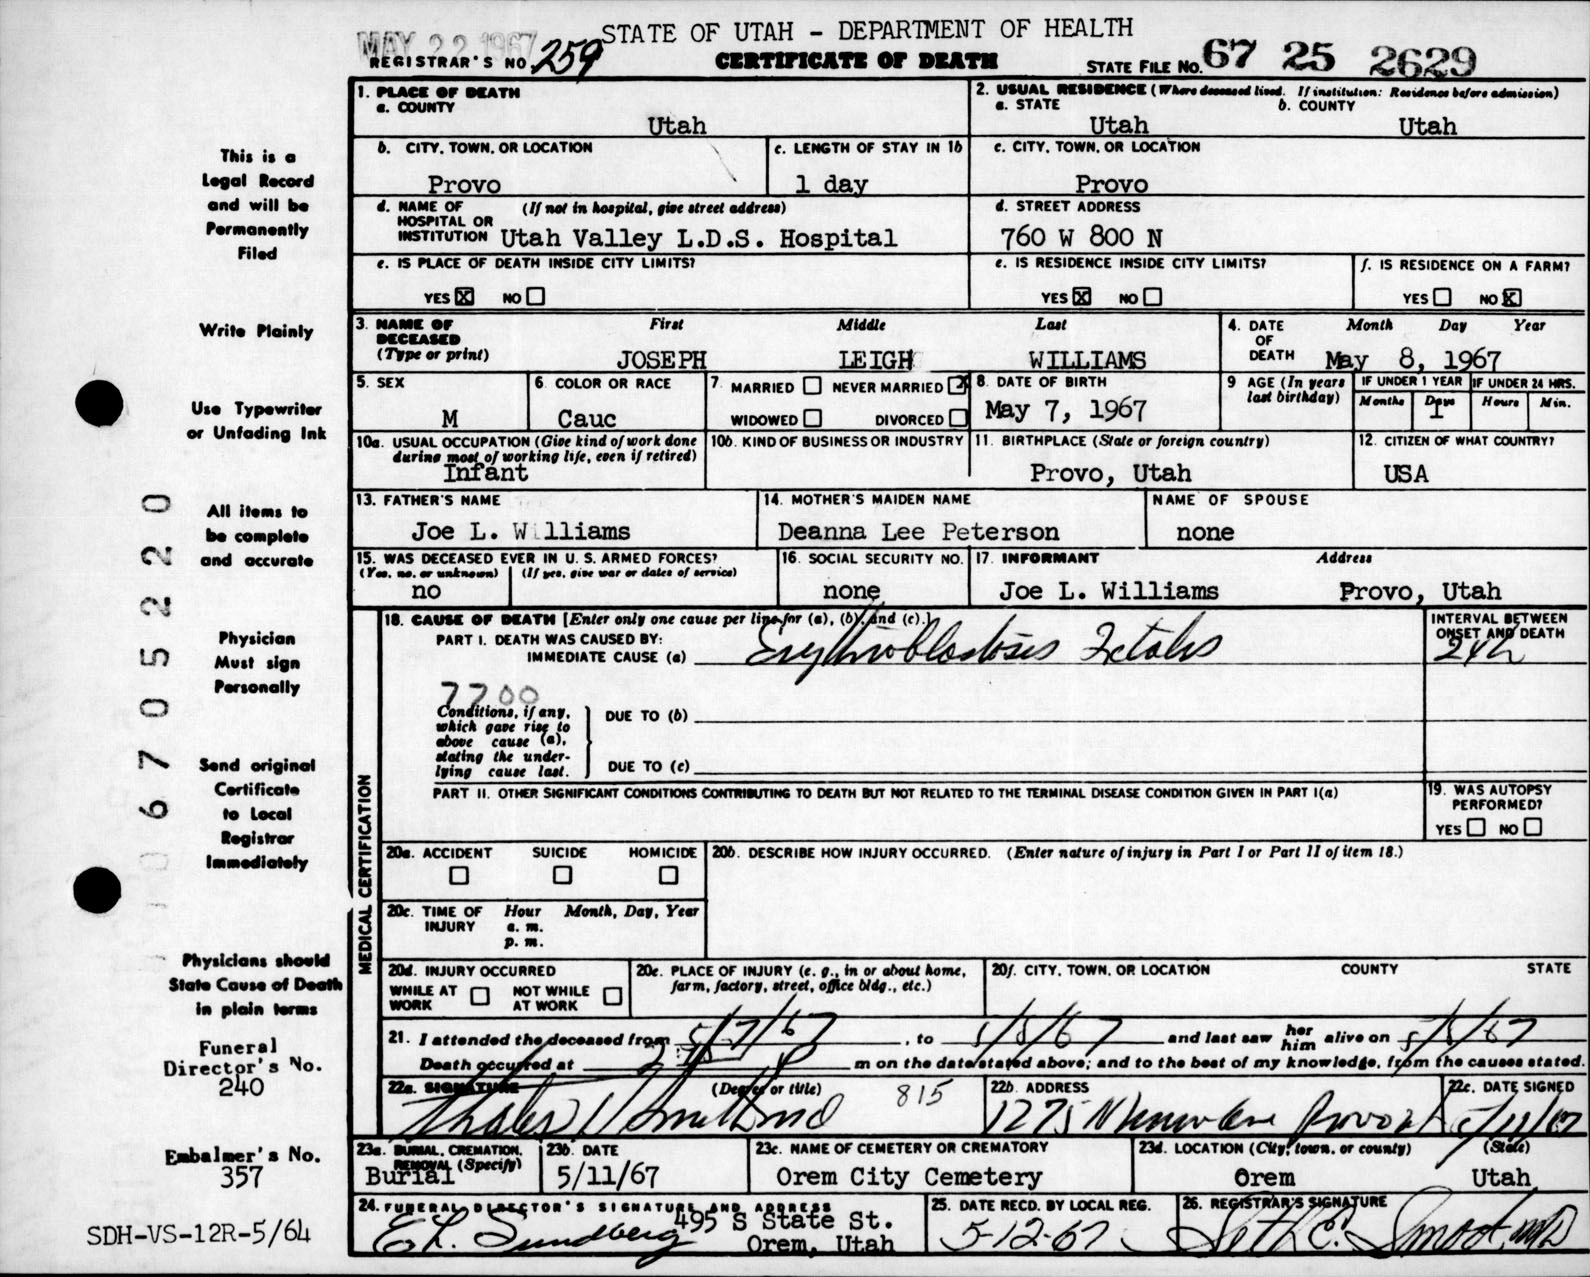 STATE OF UTAH - DEPARTMENT OF HEALTH
MAY 22 1967
REGISTRAR'S NO. 259
CERTIFICATE OF DEATH
STATE FILE NO. 67 25 2629
This is a
Legal Record
and will be
Permanently
Filed
Write Plainly
Use Typewriter
or Unfading Ink
All items to
be complete
and accurate
Physician
Must sign
Personally
Send original
Certificate
to Local
Registrar
Immediately
Physicians should
State Cause of Death
in plain terms
Funeral
Director's No.
240
Embalmer's No.
357
SDH-VS-12R-5/64
067052220
1. PLACE OF DEATH
a. COUNTY
Utah
2. USUAL RESIDENCE (Where deceased lived. If institution: Residence before admission)
a. STATE b. COUNTY
Utah Utah
b. CITY, TOWN, OR LOCATION
Provo
c. LENGTH OF STAY IN 1b
1 day
c. CITY, TOWN, OR LOCATION
Provo
d. NAME OF (If not in hospital, give street address)
HOSPITAL OR
INSTITUTION Utah Valley L.D.S. Hospital
d. STREET ADDRESS
760 W 800 N
e. IS PLACE OF DEATH INSIDE CITY LIMITS?
YES X NO
e. IS RESIDENCE INSIDE CITY LIMITS?
YES X NO
f. IS RESIDENCE ON A FARM?
YES NO X
3. NAME OF First Middle Last
DECEASED
(Type or print) JOSEPH LEIGH WILLIAMS
4. DATE Month Day Year
OF
DEATH May 8, 1967
5. SEX
M
6. COLOR OR RACE
Cauc
7. MARRIED NEVER MARRIED X
WIDOWED DIVORCED
8. DATE OF BIRTH
May 7, 1967
9 AGE (In years
last birthday)
IF UNDER 1 YEAR IF UNDER 24 HRS.
Months Days Hours Min.
1
10a. USUAL OCCUPATION (Give kind of work done
during most of working life, even if retired)
Infant
10b. KIND OF BUSINESS OR INDUSTRY
11. BIRTHPLACE (State or foreign country)
Provo, Utah
12. CITIZEN OF WHAT COUNTRY?
USA
13. FATHER'S NAME
Joe L. Williams
14. MOTHER'S MAIDEN NAME
Deanna Lee Peterson
NAME OF SPOUSE
none
15. WAS DECEASED EVER IN U. S. ARMED FORCES?
(Yes, no, or unknown) (If yes, give war or dates of service)
no
16. SOCIAL SECURITY NO.
none
17. INFORMANT Address
Joe L. Williams Provo, Utah
MEDICAL CERTIFICATION
18. CAUSE OF DEATH [Enter only one cause per line for (a), (b), and (c).]
PART I. DEATH WAS CAUSED BY:
IMMEDIATE CAUSE (a) Erythroblastosis Fetalis
INTERVAL BETWEEN
ONSET AND DEATH
24h
7700
Conditions, if any,
which gave rise to
above cause (a),
stating the under-
lying cause last.
DUE TO (b)
DUE TO (c)
PART II. OTHER SIGNIFICANT CONDITIONS CONTRIBUTING TO DEATH BUT NOT RELATED TO THE TERMINAL DISEASE CONDITION GIVEN IN PART I(a)
19. WAS AUTOPSY
PERFORMED?
YES NO
20a. ACCIDENT SUICIDE HOMICIDE
20b. DESCRIBE HOW INJURY OCCURRED. (Enter nature of injury in Part I or Part II of item 18.)
20c. TIME OF Hour Month, Day, Year
INJURY a. m.
p. m.
20d. INJURY OCCURRED
WHILE AT NOT WHILE
WORK AT WORK
20e. PLACE OF INJURY (e. g., in or about home,
farm, factory, street, office bldg., etc.)
20f. CITY, TOWN, OR LOCATION COUNTY STATE
21. I attended the deceased from 5/7/67, to 5/8/67 and last saw her him alive on 5/8/67
Death occurred at m on the date stated above; and to the best of my knowledge, from the causes stated.
22a. SIGNATURE (Degree or title)
815
22b. ADDRESS
1275 N Provo
22c. DATE SIGNED
23a. BURIAL, CREMATION,
REMOVAL (Specify)
Burial
23b. DATE
5/11/67
23c. NAME OF CEMETERY OR CREMATORY
Orem City Cemetery
23d. LOCATION (City, town, or county) (State)
Orem Utah
24. FUNERAL DIRECTOR'S SIGNATURE AND ADDRESS
E L. Sundberg 495 S State St.
Orem, Utah
25. DATE RECD. BY LOCAL REG.
5-12-67
26. REGISTRAR'S SIGNATURE
Seth E. Smoot, MD